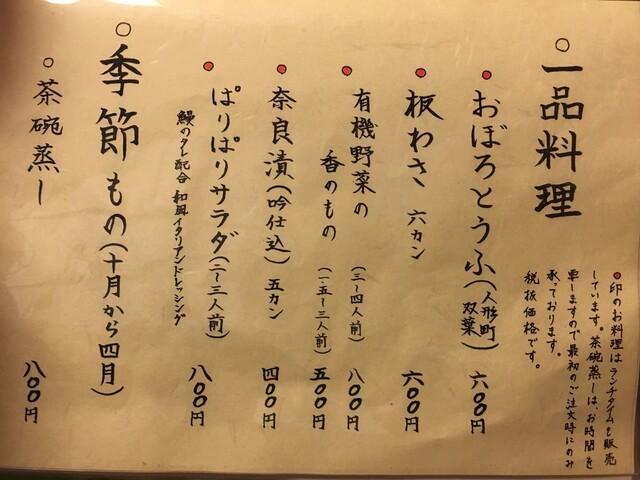 ○一品料理
●印のお料理はランチタイムも販売
しています。茶碗蒸しは、お時間を
要しますので最初のご注文時にのみ
承っております。
税抜価格です。
●おぼろとうふ(人形町双葉) 六〇〇円
●板わさ 六カン 六〇〇円
●有機野菜の (三〜四人前) 八〇〇円
香のもの (一・五〜三人前) 五〇〇円
●奈良漬(吟仕込) 五カン 四〇〇円
●ぱりぱりサラダ(二〜三人前) 八〇〇円
鰻のタレ配合 和風イタリアンドレッシング
○季節もの(十月から四月)
○茶碗蒸し 八〇〇円